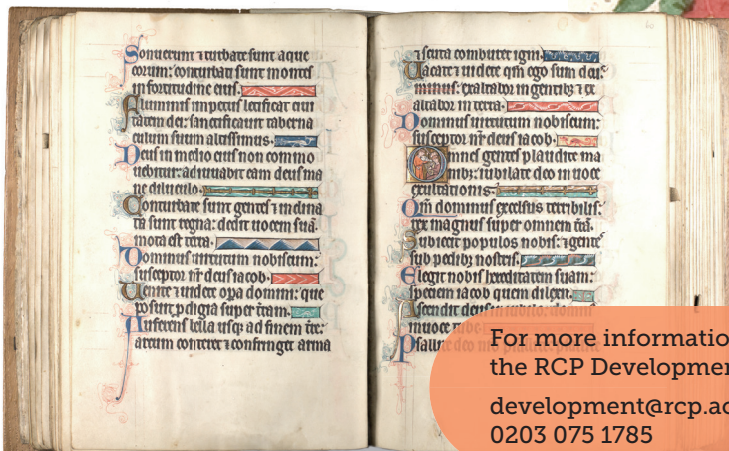 Sonuerunt ⁊ turbate sunt aque
eorum: conturbati sunt montes
in fortitudine eius.
Fluminis impetus letificat ciui
tatem dei: sanctificauit taberna
culum suum altissimus.
Deus in medio eius non commo
uebitur: adiuuabit eam deus ma
ne diluculo.
Conturbate sunt gentes ⁊ inclina
ta sunt regna: dedit uocem suā
mota est terra.
Dominus uirtutum nobiscum:
susceptor nr̄ deus iacob.
Uenite ⁊ uidete opa domini: que
posuit pdigia super tram.
Auferens bella usqꝫ ad finem tre:
arcum conteret ⁊ confringet arma
60
⁊ scuta comburet igni.
Uacate ⁊ uidete qm̄ ego sum deus
minus: exaltabor in gentibꝫ ⁊ ex
altabor in terra.
Dominus uirtutum nobiscum:
susceptor nr̄ deus iacob.
Omnes gentes plaudite ma
nibꝫ: iubilate deo in uoce
exultationis.
Qm̄ dominus excelsus terribilis:
rex magnus super omnem trā.
Subiecit populos nobis: ⁊ gentes
sub pedibꝫ nostris.
Elegit nobis hereditatem suam:
speciem iacob quem dilexit.
Ascendit deus in iubilo: domin
in uoce tube.
Psallite deo nr̄o psallite: psallite
For more informatio
the RCP Developmen
development@rcp.ac
0203 075 1785